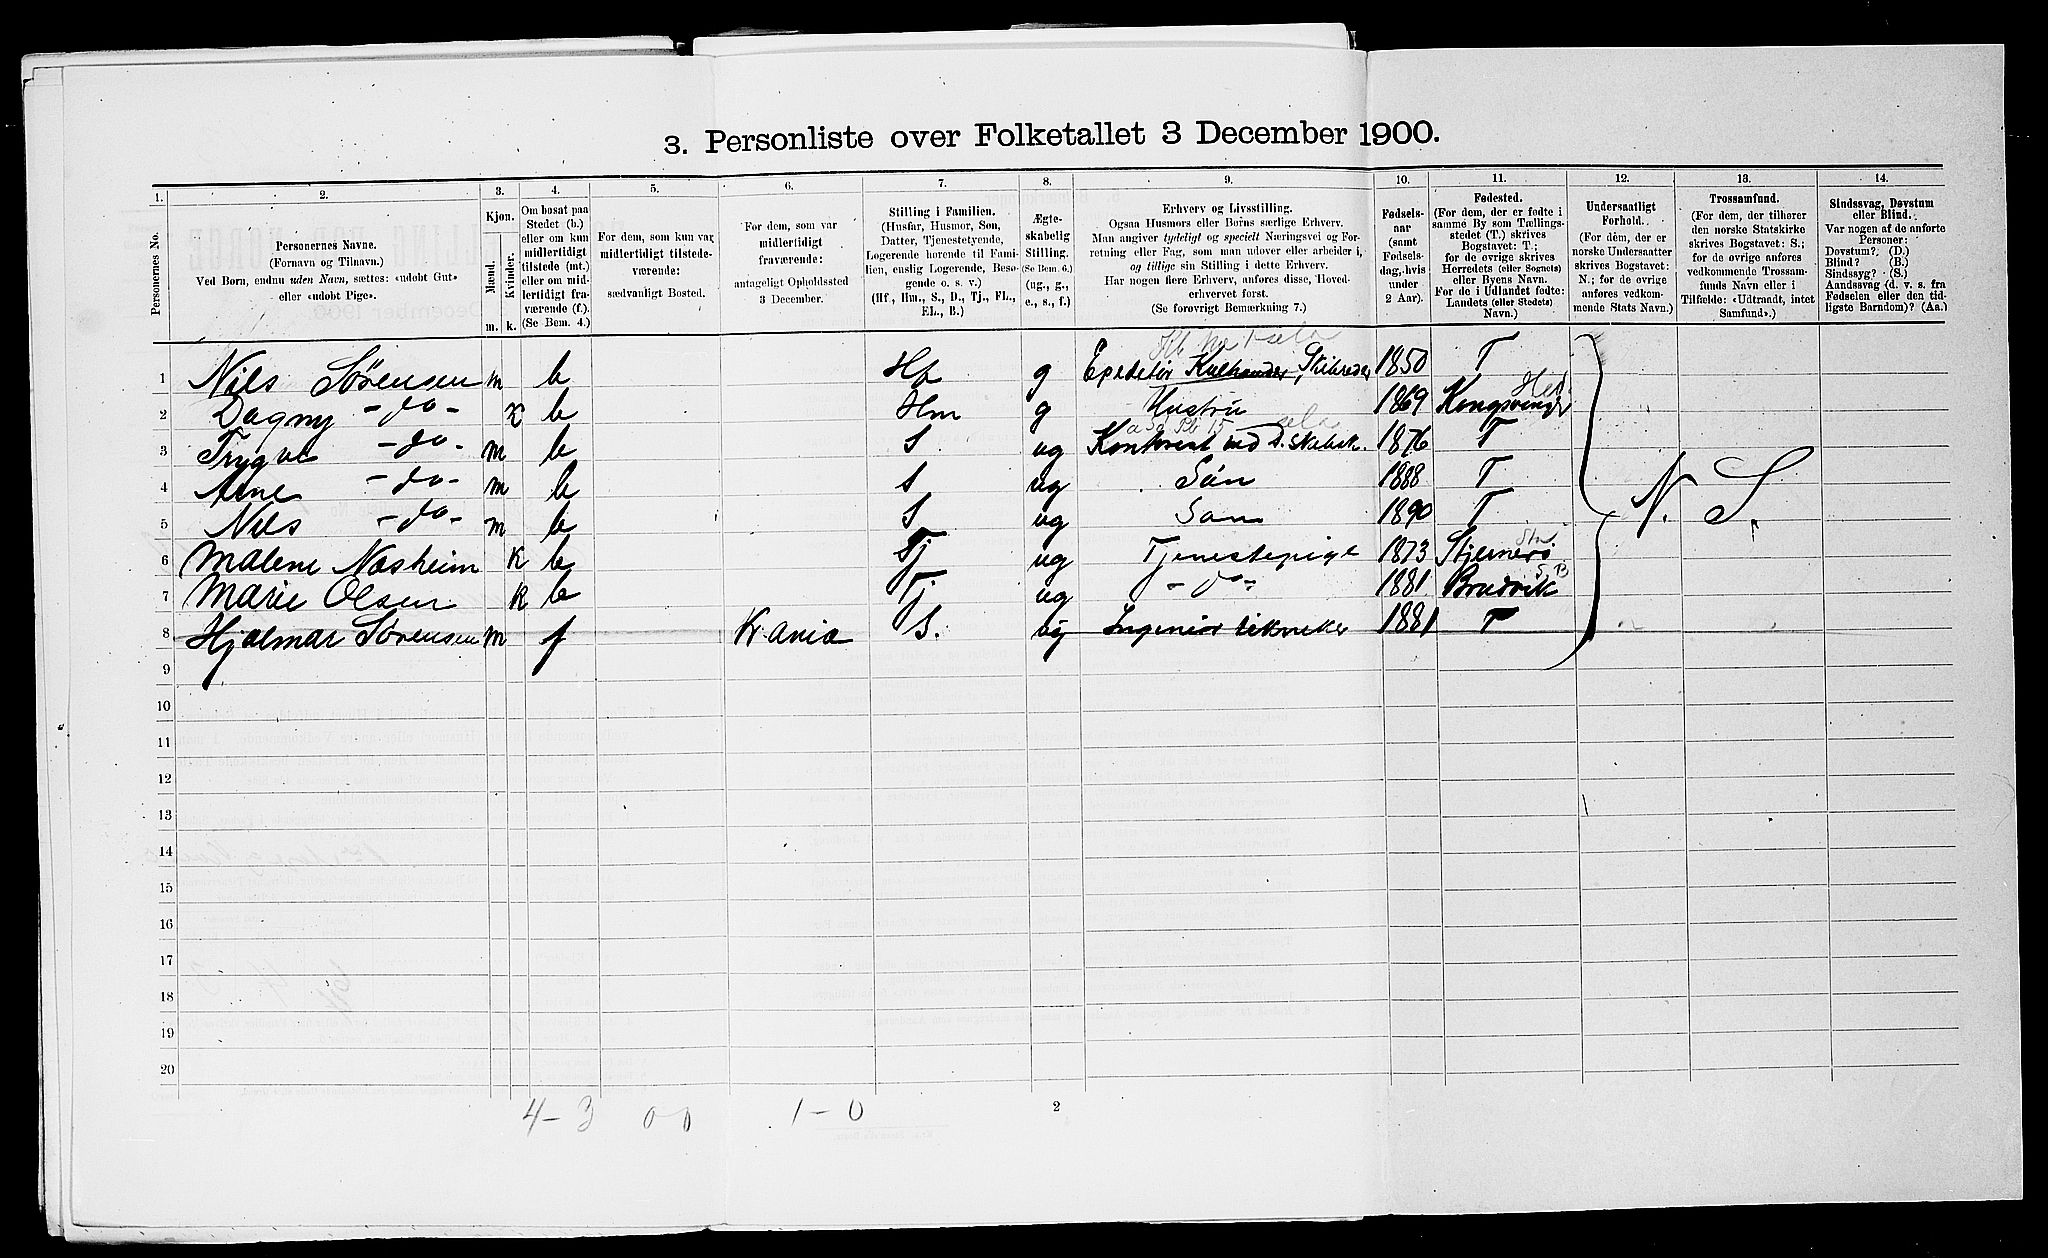 3. Personliste over Folketallet 3 December 1900.
1. 2. 3. 4. 5. 6. 7. 8. 9. 10. 11. 12. 13. 14.
Personernes No.
Personernes Navne.
(Fornavn og Tilnavn.)
Ved Børn, endnu uden Navn, sættes: «udøbt Gut»
eller «udøbt Pige».
Kjøn.
Mænd.
Kvinder.
m. k.
Om bosat paa
Stedet (b.)
eller om kun
midlertidigt
tilstede (mt.)
eller om mid-
lertidigt fra-
værende (f.).
(Se Bem. 4.)
For dem, som kun var
midlertidigt tilstede-
værende:
sædvanligt Bosted.
For dem, som var
midlertidigt
fraværende:
antageligt Opholdssted
3 December.
Stilling i Familien.
(Husfar, Husmor, Søn,
Datter, Tjenestetyende,
Logerende hørende til Fami-
lien, enslig Logerende, Besø-
gende o. s. v.)
(Hf., Hm., S., D., Tj., FL.,
EL., B.)
Ægte-
skabelig
Stilling.
(Se Bem. 6.)
(ug., g.,
e., s., f.)
Erhverv og Livsstilling.
Ogsaa Husmors eller Børns særlige Erhverv.
Man angiver tydeligt og specielt Næringsvei og For-
retning eller Fag, som man udøver eller arbeider i,
og tillige sin Stilling i dette Erhverv.
Har nogen flere Erhverv, anføres disse, Hoved-
erhvervet først.
(Se forøvrigt Bemærkning 7.)
Fødsels-
aar
(samt
Fødsels-
dag, hvis
under
2 Aar).
Fødested.
(For dem, der er fødte i
samme By som Tællings-
stedet (T.) skrives
Bogstavet: T.;
for de øvrige skrives
Herredets (eller Sognets)
eller Byens Navn.
For de i Udlandet fødte:
Landets (eller Stedets)
Navn.)
Undersaatligt
Forhold.
(For dem, der er
norske Undersaatter
skrives Bogstavet:
N.; for de øvrige
anføres vedkom-
mende Stats Navn.)
Trossamfund.
(For dem, der tilhører
den norske Statskirke
skrives Bogstavet: S.;
for de øvrige anføres
vedkommende Trossam-
funds Navn eller i
Tilfælde: «Udtraadt, intet
Samfund».)
Sindssvag, Døvstum
eller Blind.
Var nogen af de anførte
Personer:
Døvstum? (D.)
Blind? (B.)
Sindssyg? (S.)
Aandssvag (d. v. s. fra
Fødselen eller den tid-
ligste Barndom)? (Aa.)
1 Nils Sörensen m b Hf g Expeditör Kulhandel, Skibsreder 1850 T
2 Dagny -do- k b Hm g Hustru 1869 Kongsvinger Hed.
3 Trygve -do- m b S ug 1876 T
4 Arne -do- m b S ug Sön 1888 T
5 Nils -do- m b S ug Sön 1890 T
N. S.
6 Malene Næsheim k b Tj ug Tjenestepige 1873 Stjernerö Sta
7 Marie Olsen k b T. ug -do- 1881 Bruvik S B
8 Hjalmar Sörensen m f Krania S. ug Ingeniör tekniker 1881 T
9
10
11
12
13
14
15
16
17
18
19
20
4-3 0 0 1-0 2